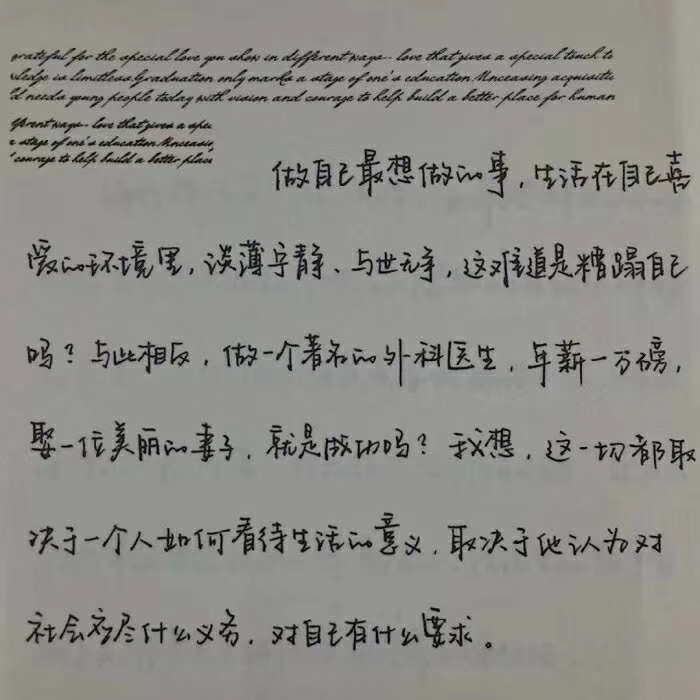 grateful for the special love you show in different ways.. love that gives a special touch to
wledge is limitless.Graduation only marks a stage of one's education.Unceasing acquisitio
ld needs young people today with vision and courage to help build a better place for human
fferent ways.. love that gives a spec
a stage of one's education.Unceasin
courage to help build a better place
做自己最想做的事，生活在自己喜
爱的环境里，淡薄宁静、与世无争，这难道是糟蹋自己
吗？与此相反，做一个著名的外科医生，年薪一万磅，
娶一位美丽的妻子，就是成功吗？我想，这一切都取
决于一个人如何看待生活的意义，取决于他认为对
社会应尽什么义务，对自己有什么要求。